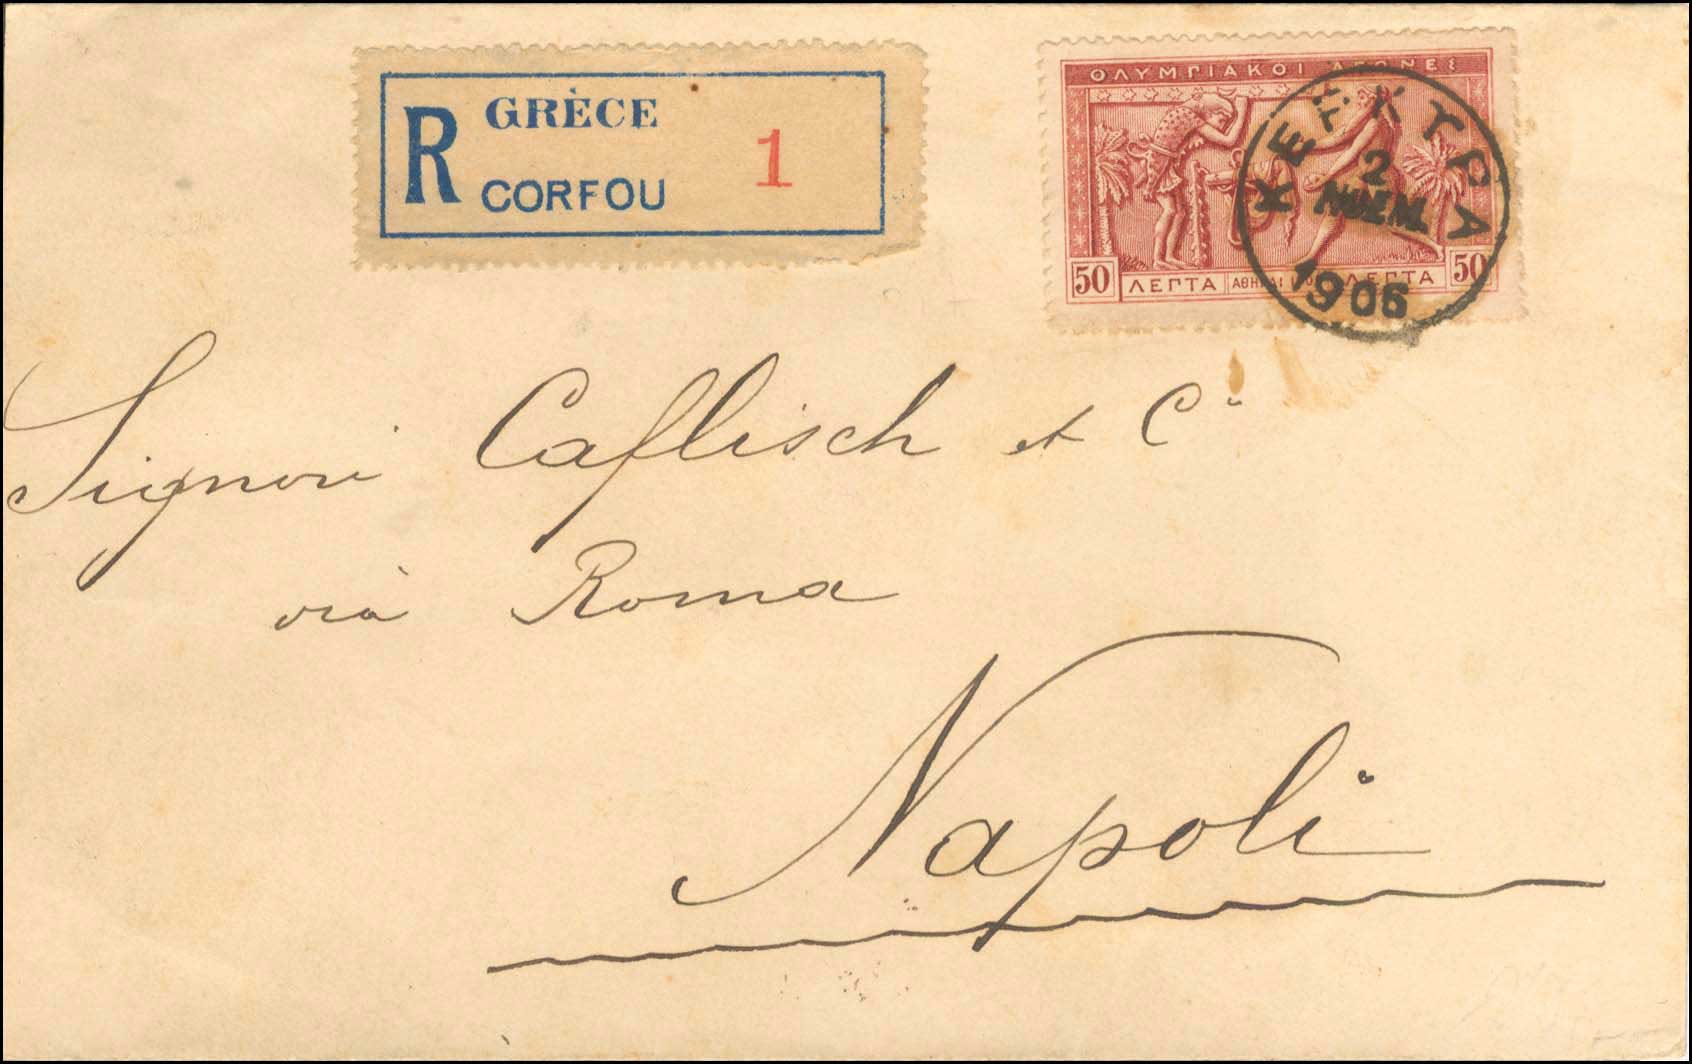 R GRÈCE
CORFOU 1
ΟΛΥΜΠΙΑΚΟΙ ΑΓΩΝΕΣ
ΚΕΡΚΥΡΑ
2
ΝΟΕΜ.
1906
50 ΛΕΠΤΑ ΛΕΠΤΑ 50
Signori Caflisch et Cº
vià Roma
Napoli